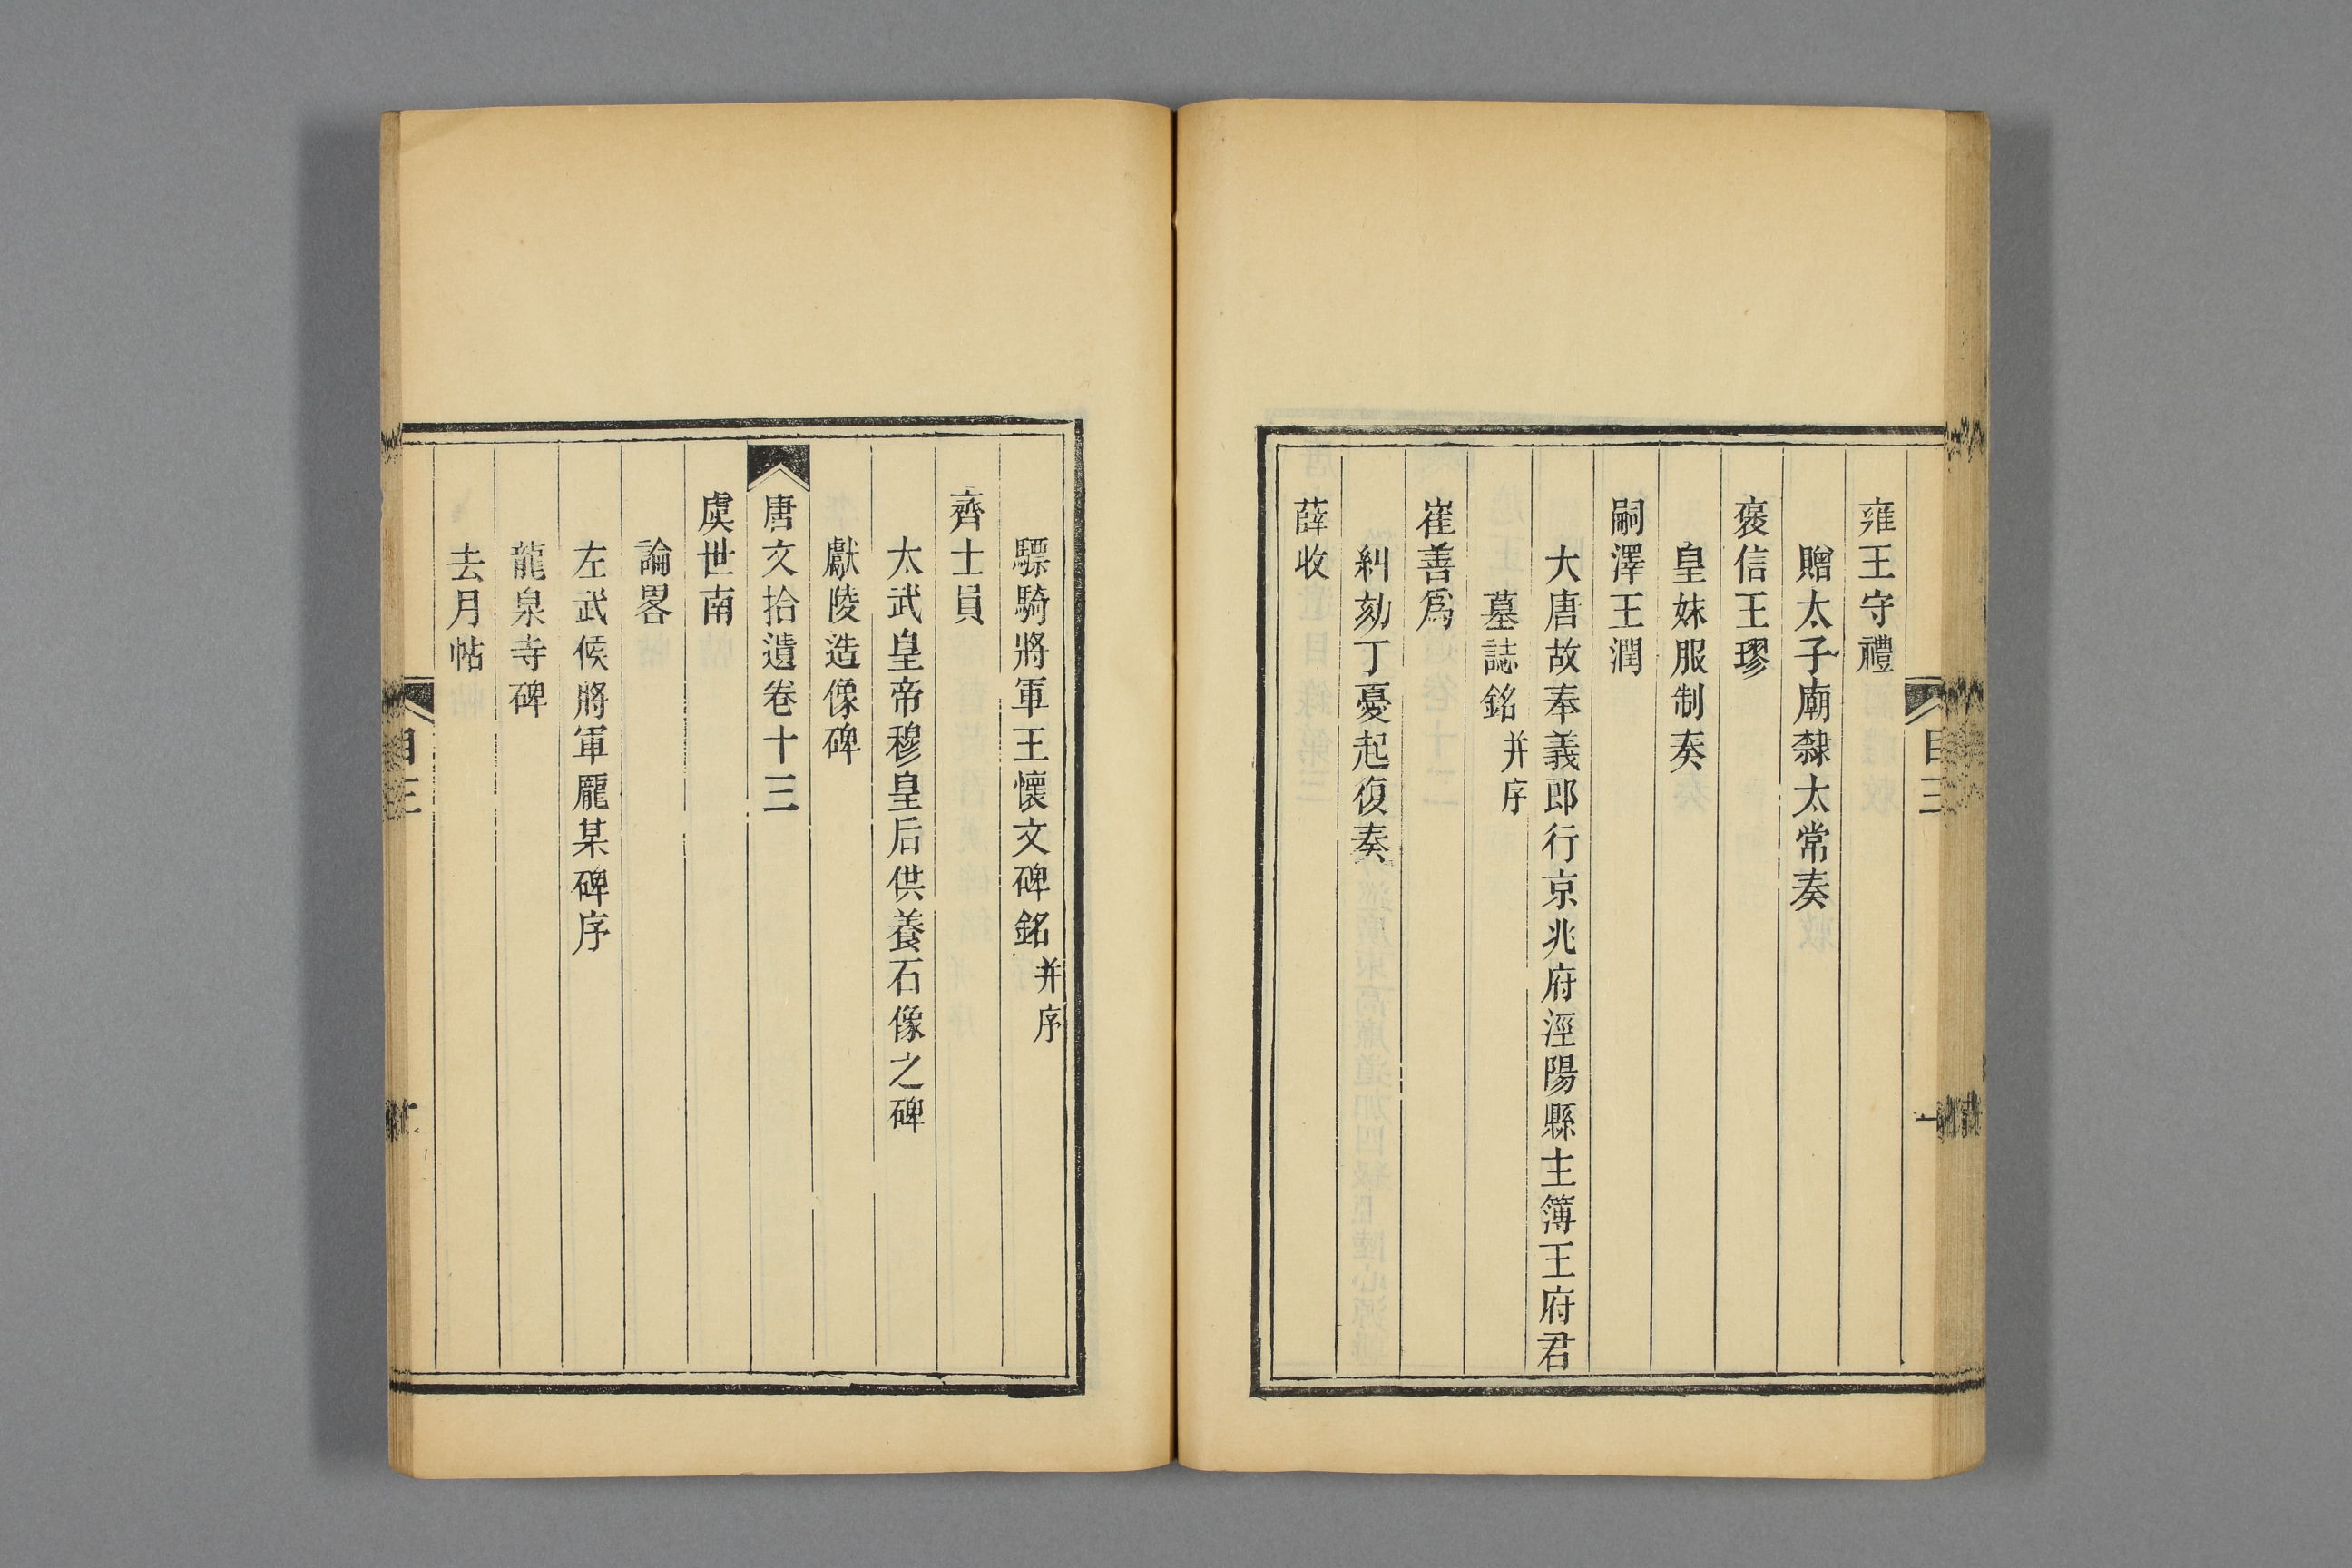 雍王守禮
贈太子廟隸太常奏
褒信王璆
皇妹服制奏
嗣澤王潤
大唐故奉義郎行京兆府涇陽縣主簿王府君
墓誌銘并序
崔善爲
糾劾丁憂起復奏
薛收
驃騎將軍王懷文碑銘并序
齊士員
太武皇帝穆皇后供養石像之碑
獻陵造像碑
唐文拾遺卷十三
虞世南
論畧
左武候將軍龐某碑序
龍泉寺碑
去月帖
目三